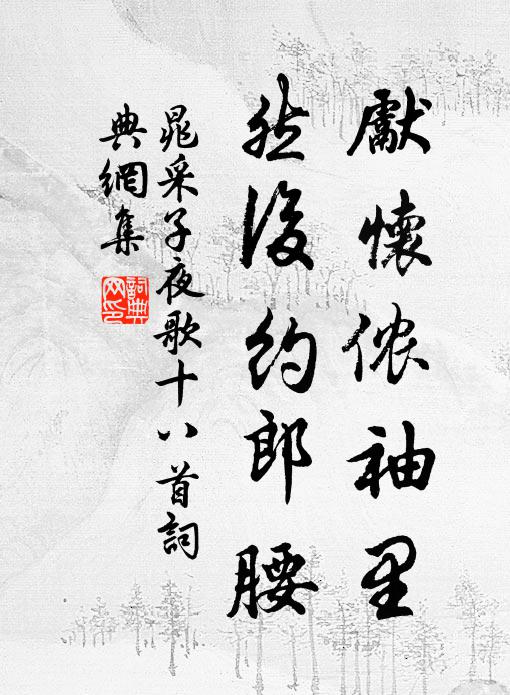 獻懷侬袖里
然後約郎腰
晁采子夜歌十八首詞
典網集
詞典
网印